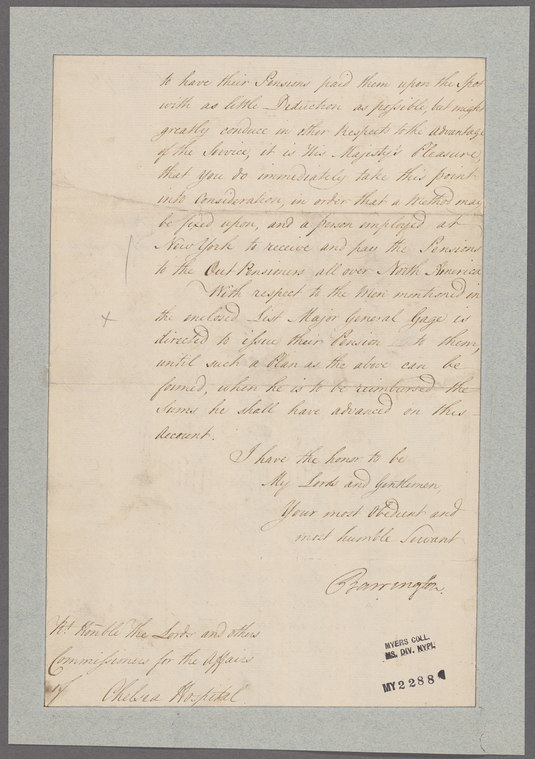 to have their Pensions paid them upon the Spot
with as little Deduction as possible, but might
greatly conduce in other respects to the advantage
of the Service, it is His Majesty's Pleasure,
that you do immediately take this point
into Consideration, in order that a Method may
be fixed upon, and a person employed at
New York to receive and pay the Pensions
to the Out Pensioners all over North America
With respect to the Men mentioned in
the enclosed List Major General Gage is
directed to issue their Pension to them,
until such a Plan as the above can be
formed, when he is to be reimbursed the
Sums he shall have advanced on this
Account.
I have the honor to be
My Lords and Gentlemen,
Your most Obedient and
most humble Servant
Barrington.
Rt. Honble The Lords and others
Commissioners for the Affairs
of Chelsea Hospital
MYERS COLL.
MS. DIV. NYPL
MY 2288